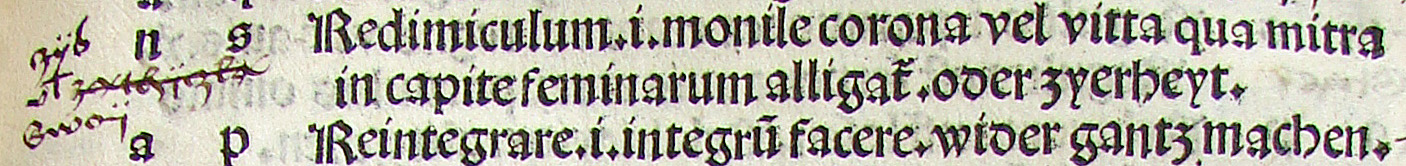 n s Redimiculum .i. monile corona vel vitta qua mitra
in capite feminarum alligat᷑. oder zyerheyt.
a p Reintegrare .i. integrū facere. wider gantz machen.